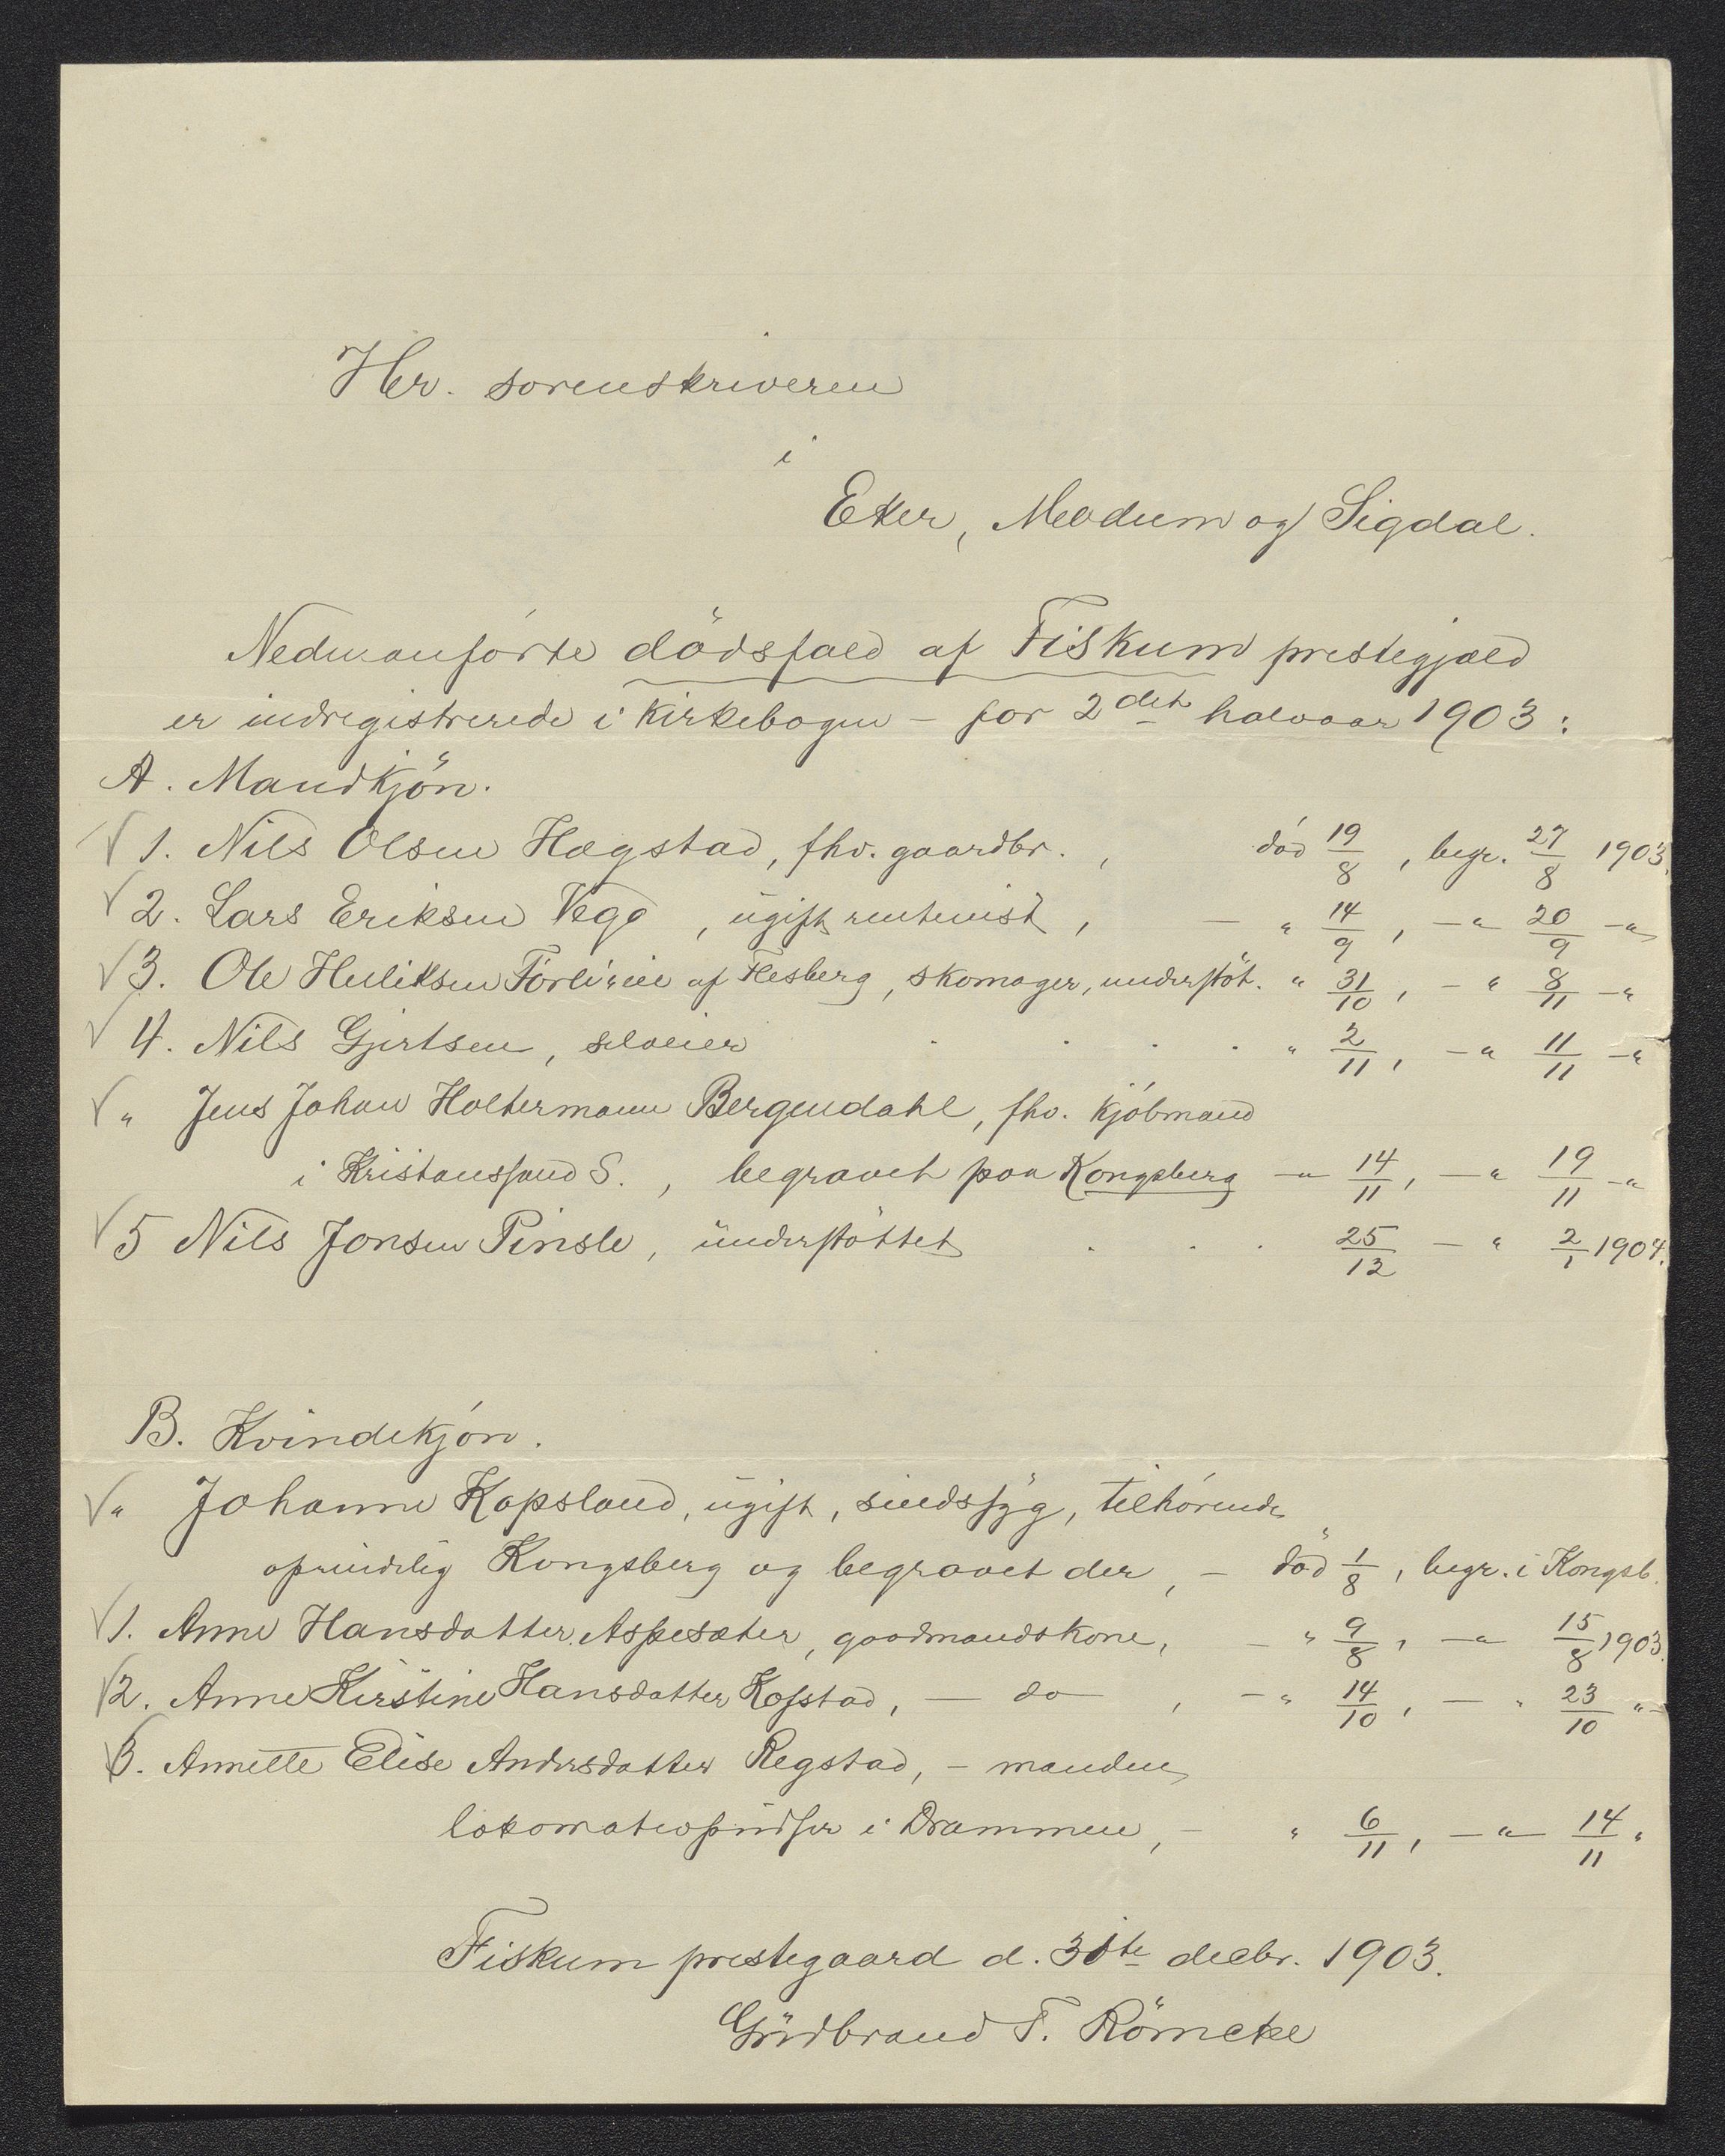 Hr. sorenskriveren
i
Eker, Modum og Sigdal.
Nedenanförte dödsfald af Fiskum prestegjæld
er indregistrerede i Kirkebogen – for 2det halvaar 1903:
A. Mandkjön.
1. Nils Olsen Hægstad, fhv. gaardbr., död 19/8, begr. 27/8 1903.
2. Lars Eriksen Vego, ugift rentenist, — " 14/9, — " 20/9 — "
3. Ole Huliksen af Flesberg, skomager, understöt. " 31/10, — " 8/11 — "
4. Nils Gjertsen, selveier " 2/11, — " 11/11 — "
" Jens Johan Holtermann Bergendahl, fhv. Kjöbmand
i Kristianssand S., begravet paa Kongsberg — " 14/11, — " 19/11 — "
5 Nils Jonsen Pinsle, understöttet 25/12 — " 2/1 1904.
B. Kvindekjön.
" Johanne Kopsland, ugift, sindssyg, tilhörende
oprindelig Kongsberg og begravet der, — död 1/8, begr. i Kongsb.
1. Anne Hansdatter Aspesæter, gaardmandskone, — " 9/8, — " 15/8 1903.
2. Anne Kirstine Hansdatter Kopstad, — do —, — " 14/10, — " 23/10 "
3. Annette Elise Andersdatter Regstad, — manden
lokomotivpudser i Drammen, — " 6/11, — " 14/11 "
Fiskum prestegaard d. 31te decbr. 1903.
Gudbrand T. Römcke